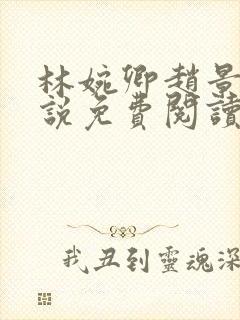 林婉卿趙景
說免費閱讀
我丑到靈魂深